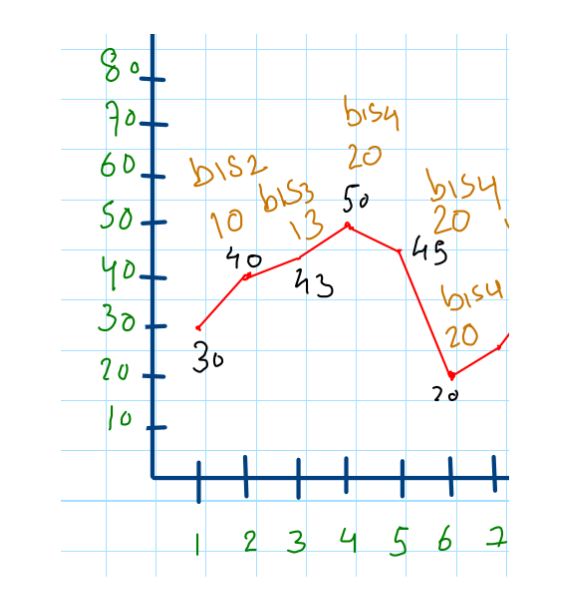 80
70
60
50
40
30
20
10
bis2
10
bis3
13
bis4
20
bis4
20
bis4
20
30
40
43
50
45
20
1 2 3 4 5 6 7